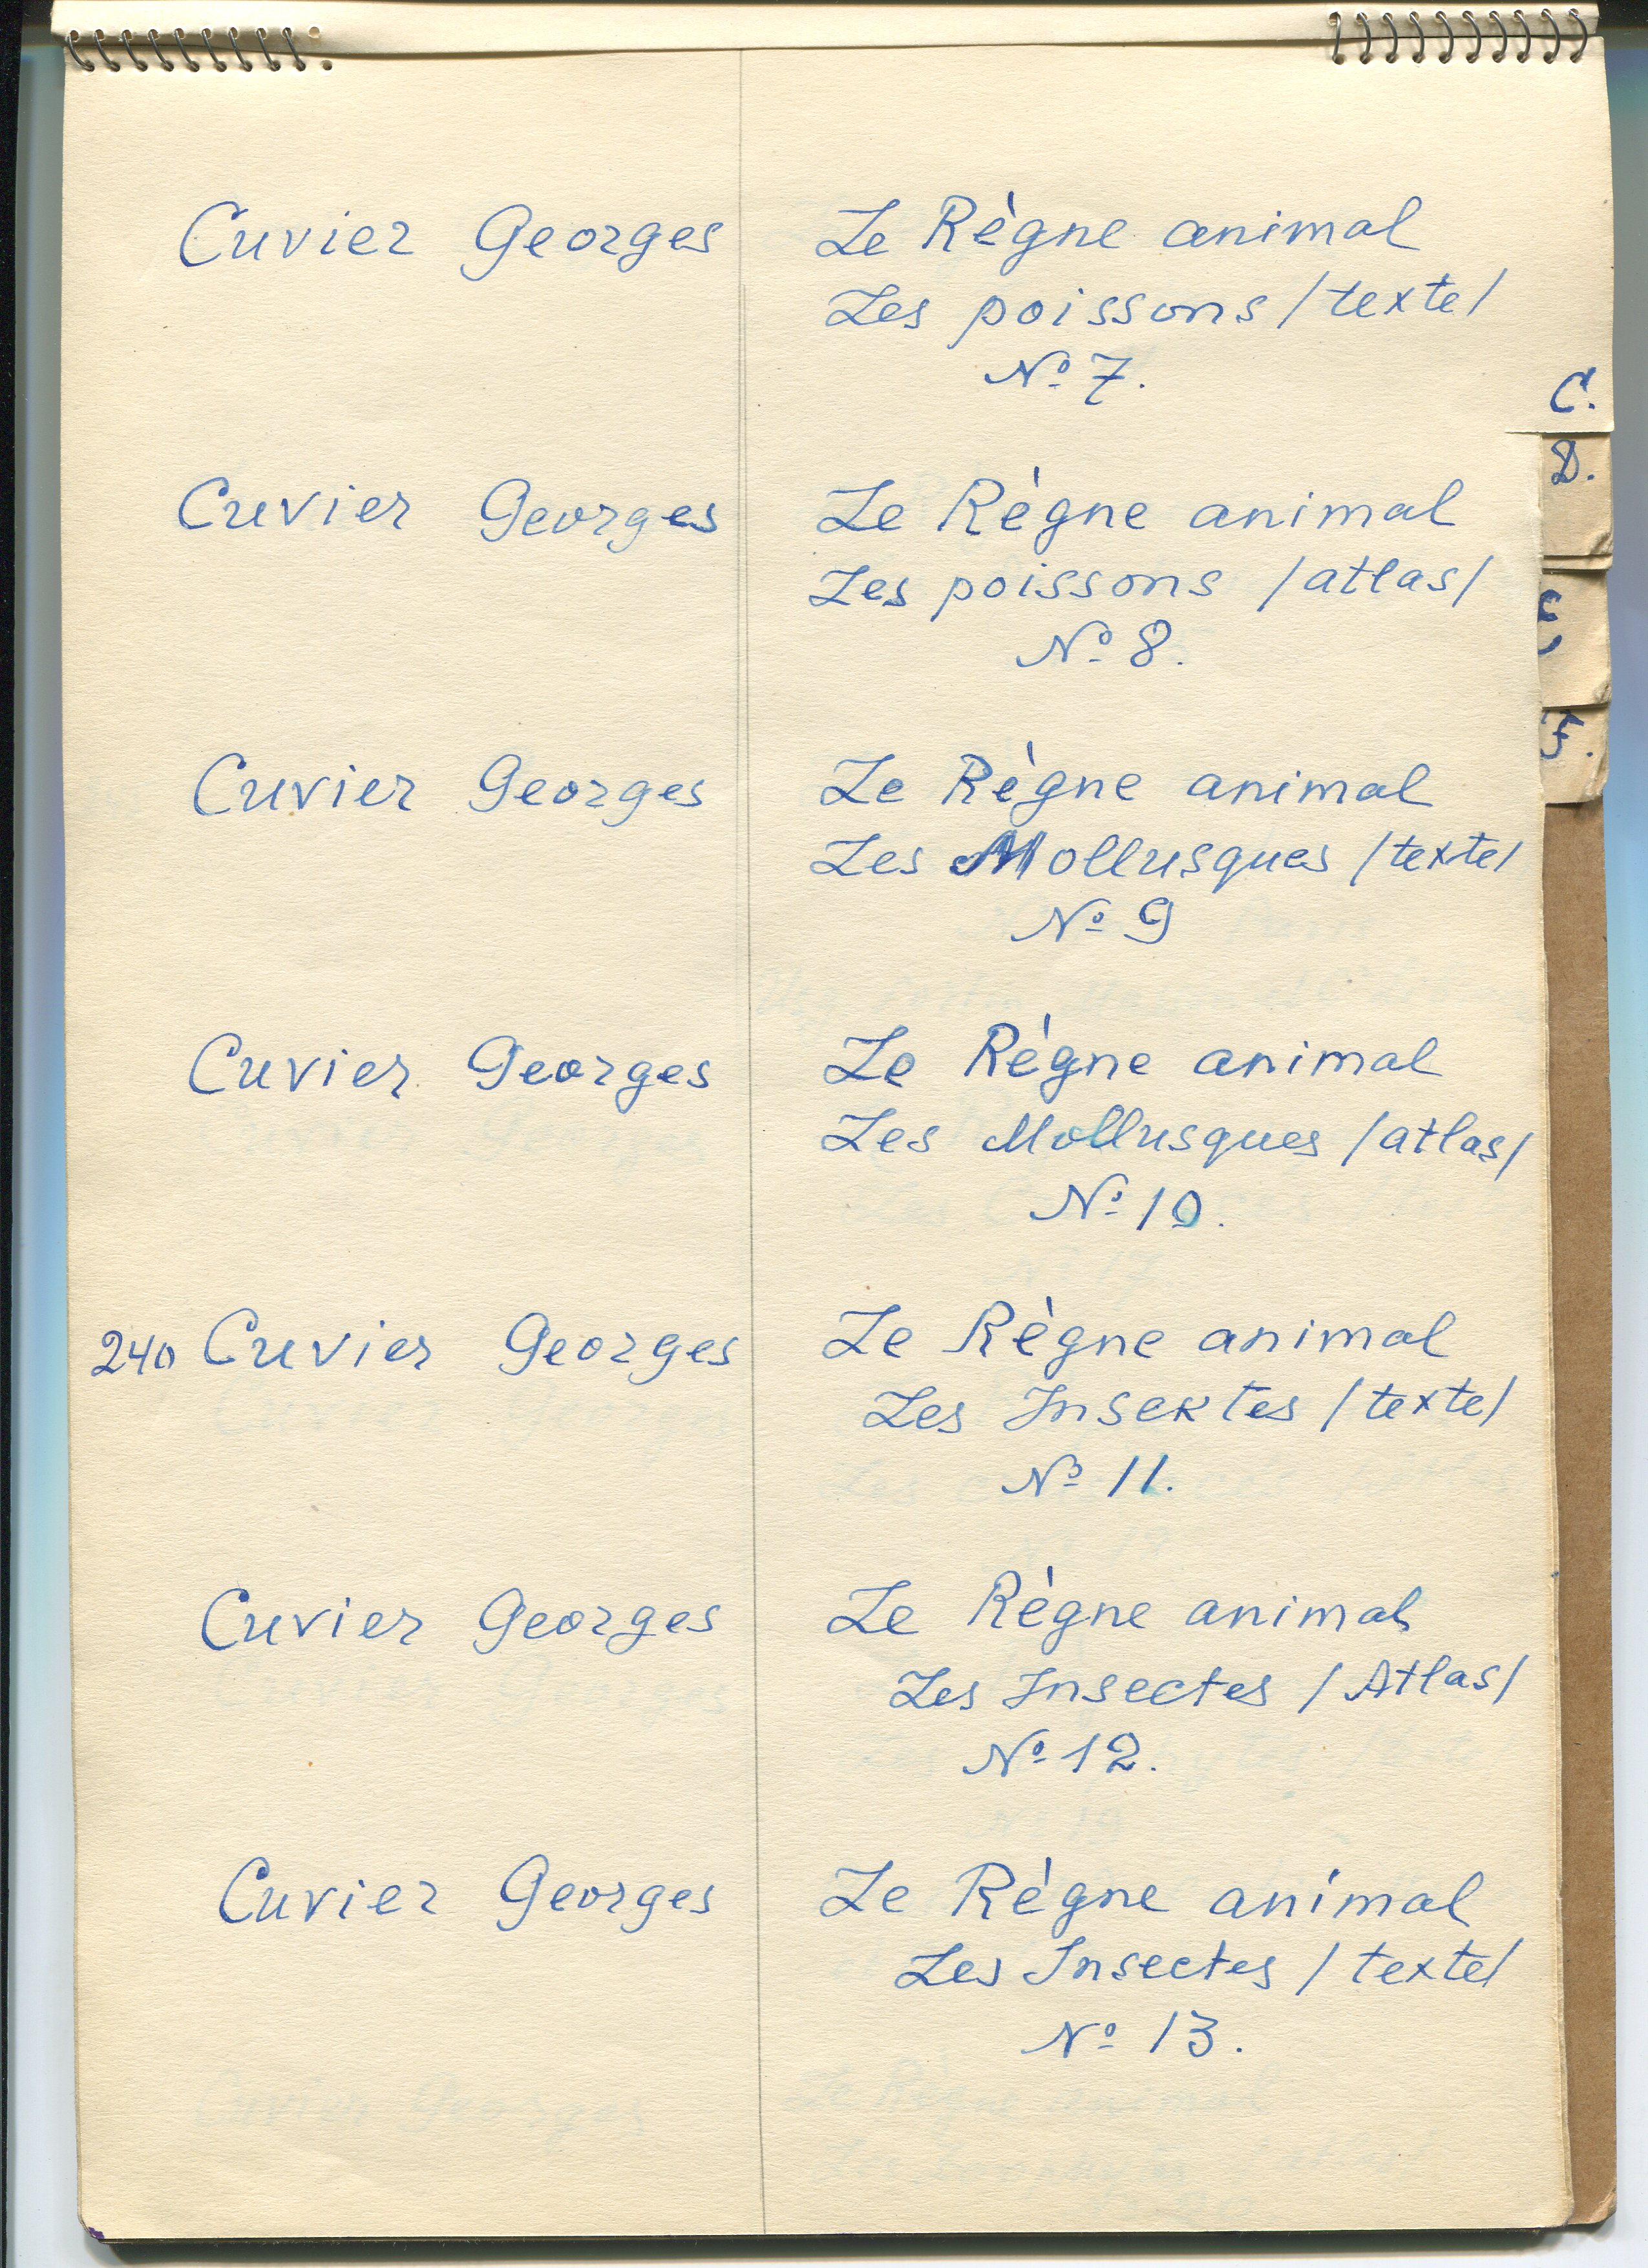 Cuvier Georges Le Règne animal
Les poissons /texte/
№ 7.
C.
D.
Cuvier Georges Le Règne animal
Les poissons /atlas/
№ 8.
F.
Cuvier Georges Le Règne animal
Les Mollusques /texte/
№ 9
Cuvier Georges Le Règne animal
Les Mollusques /atlas/
№ 10.
240 Cuvier Georges Le Règne animal
Les Insektes /texte/
№ 11.
Cuvier Georges Le Règne animal
Les Insectes /Atlas/
№ 12.
Cuvier Georges Le Règne animal
Les Insectes /texte/
№ 13.